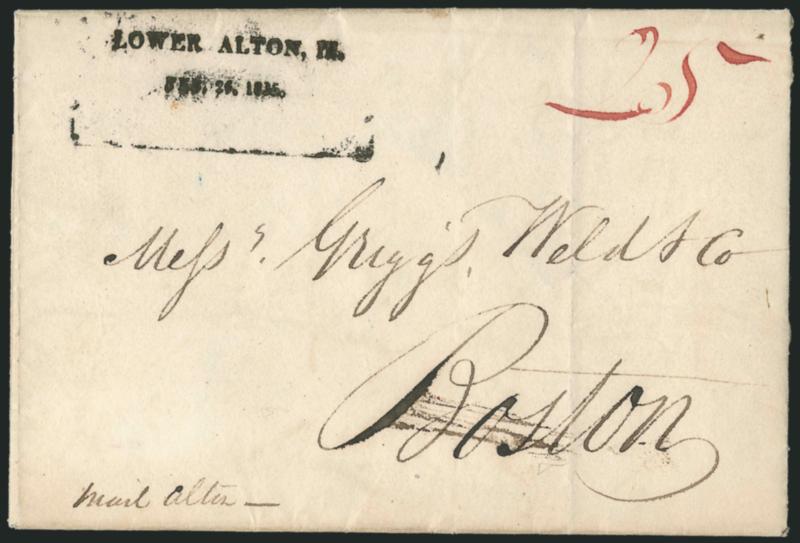 LOWER ALTON, Ill.
FEB. 26. 1835.
25
Mess^rs. Griggs, Weld & Co
Boston
mail Alton —